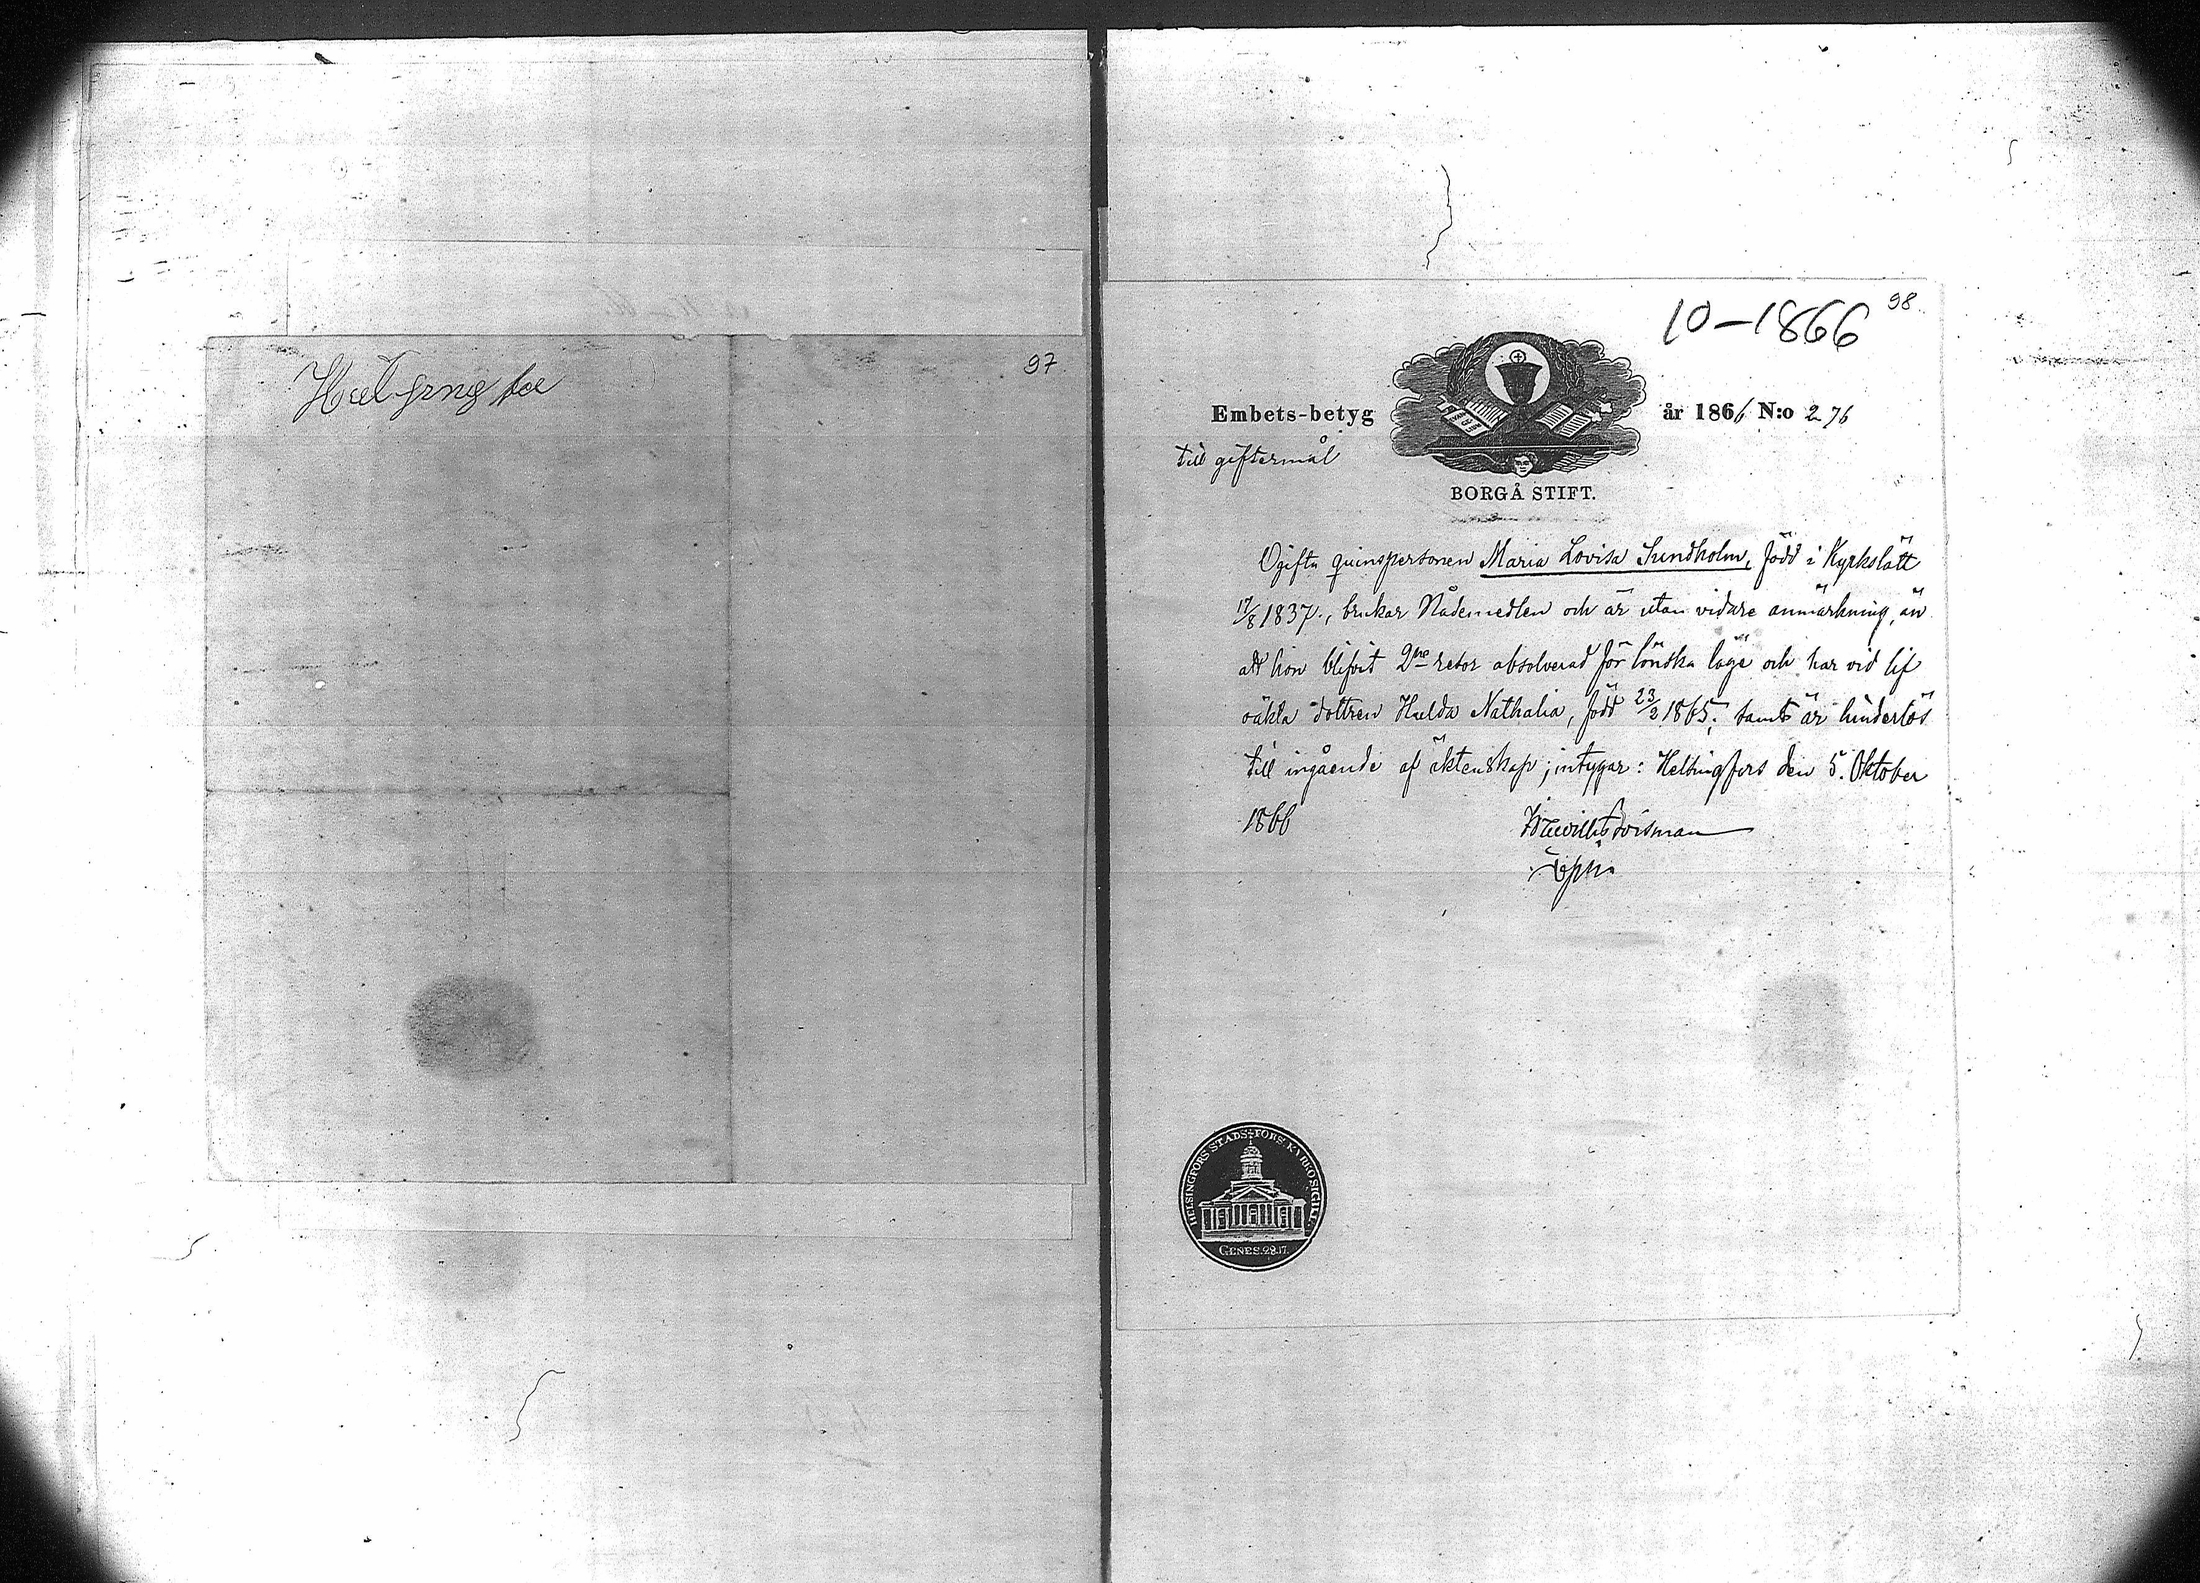 Helsingfors
97
10-1866
98
Embets-betyg
år 1866 N:o 276
till giftermål
BORGÅ STIFT.
Ogifta qvinspersonen Maria Lovisa Sundholm, född i Kyrkslätt
17/8 1837., brukar Nådemedlen och är utan vidare anmärkning, än
att hon blifvit 2ne resor absolverad för lönska läge och har vid lif
oäkta dottren Hulda Nathalia, född 23/2 1865; samt är hinderlös
till ingående af äktenskap; intygar: Helsingfors den 5. Oktober
1866
HELSINGFORS STADS-FÖRS. KYRKOSIGILL.
GENES.28.17.